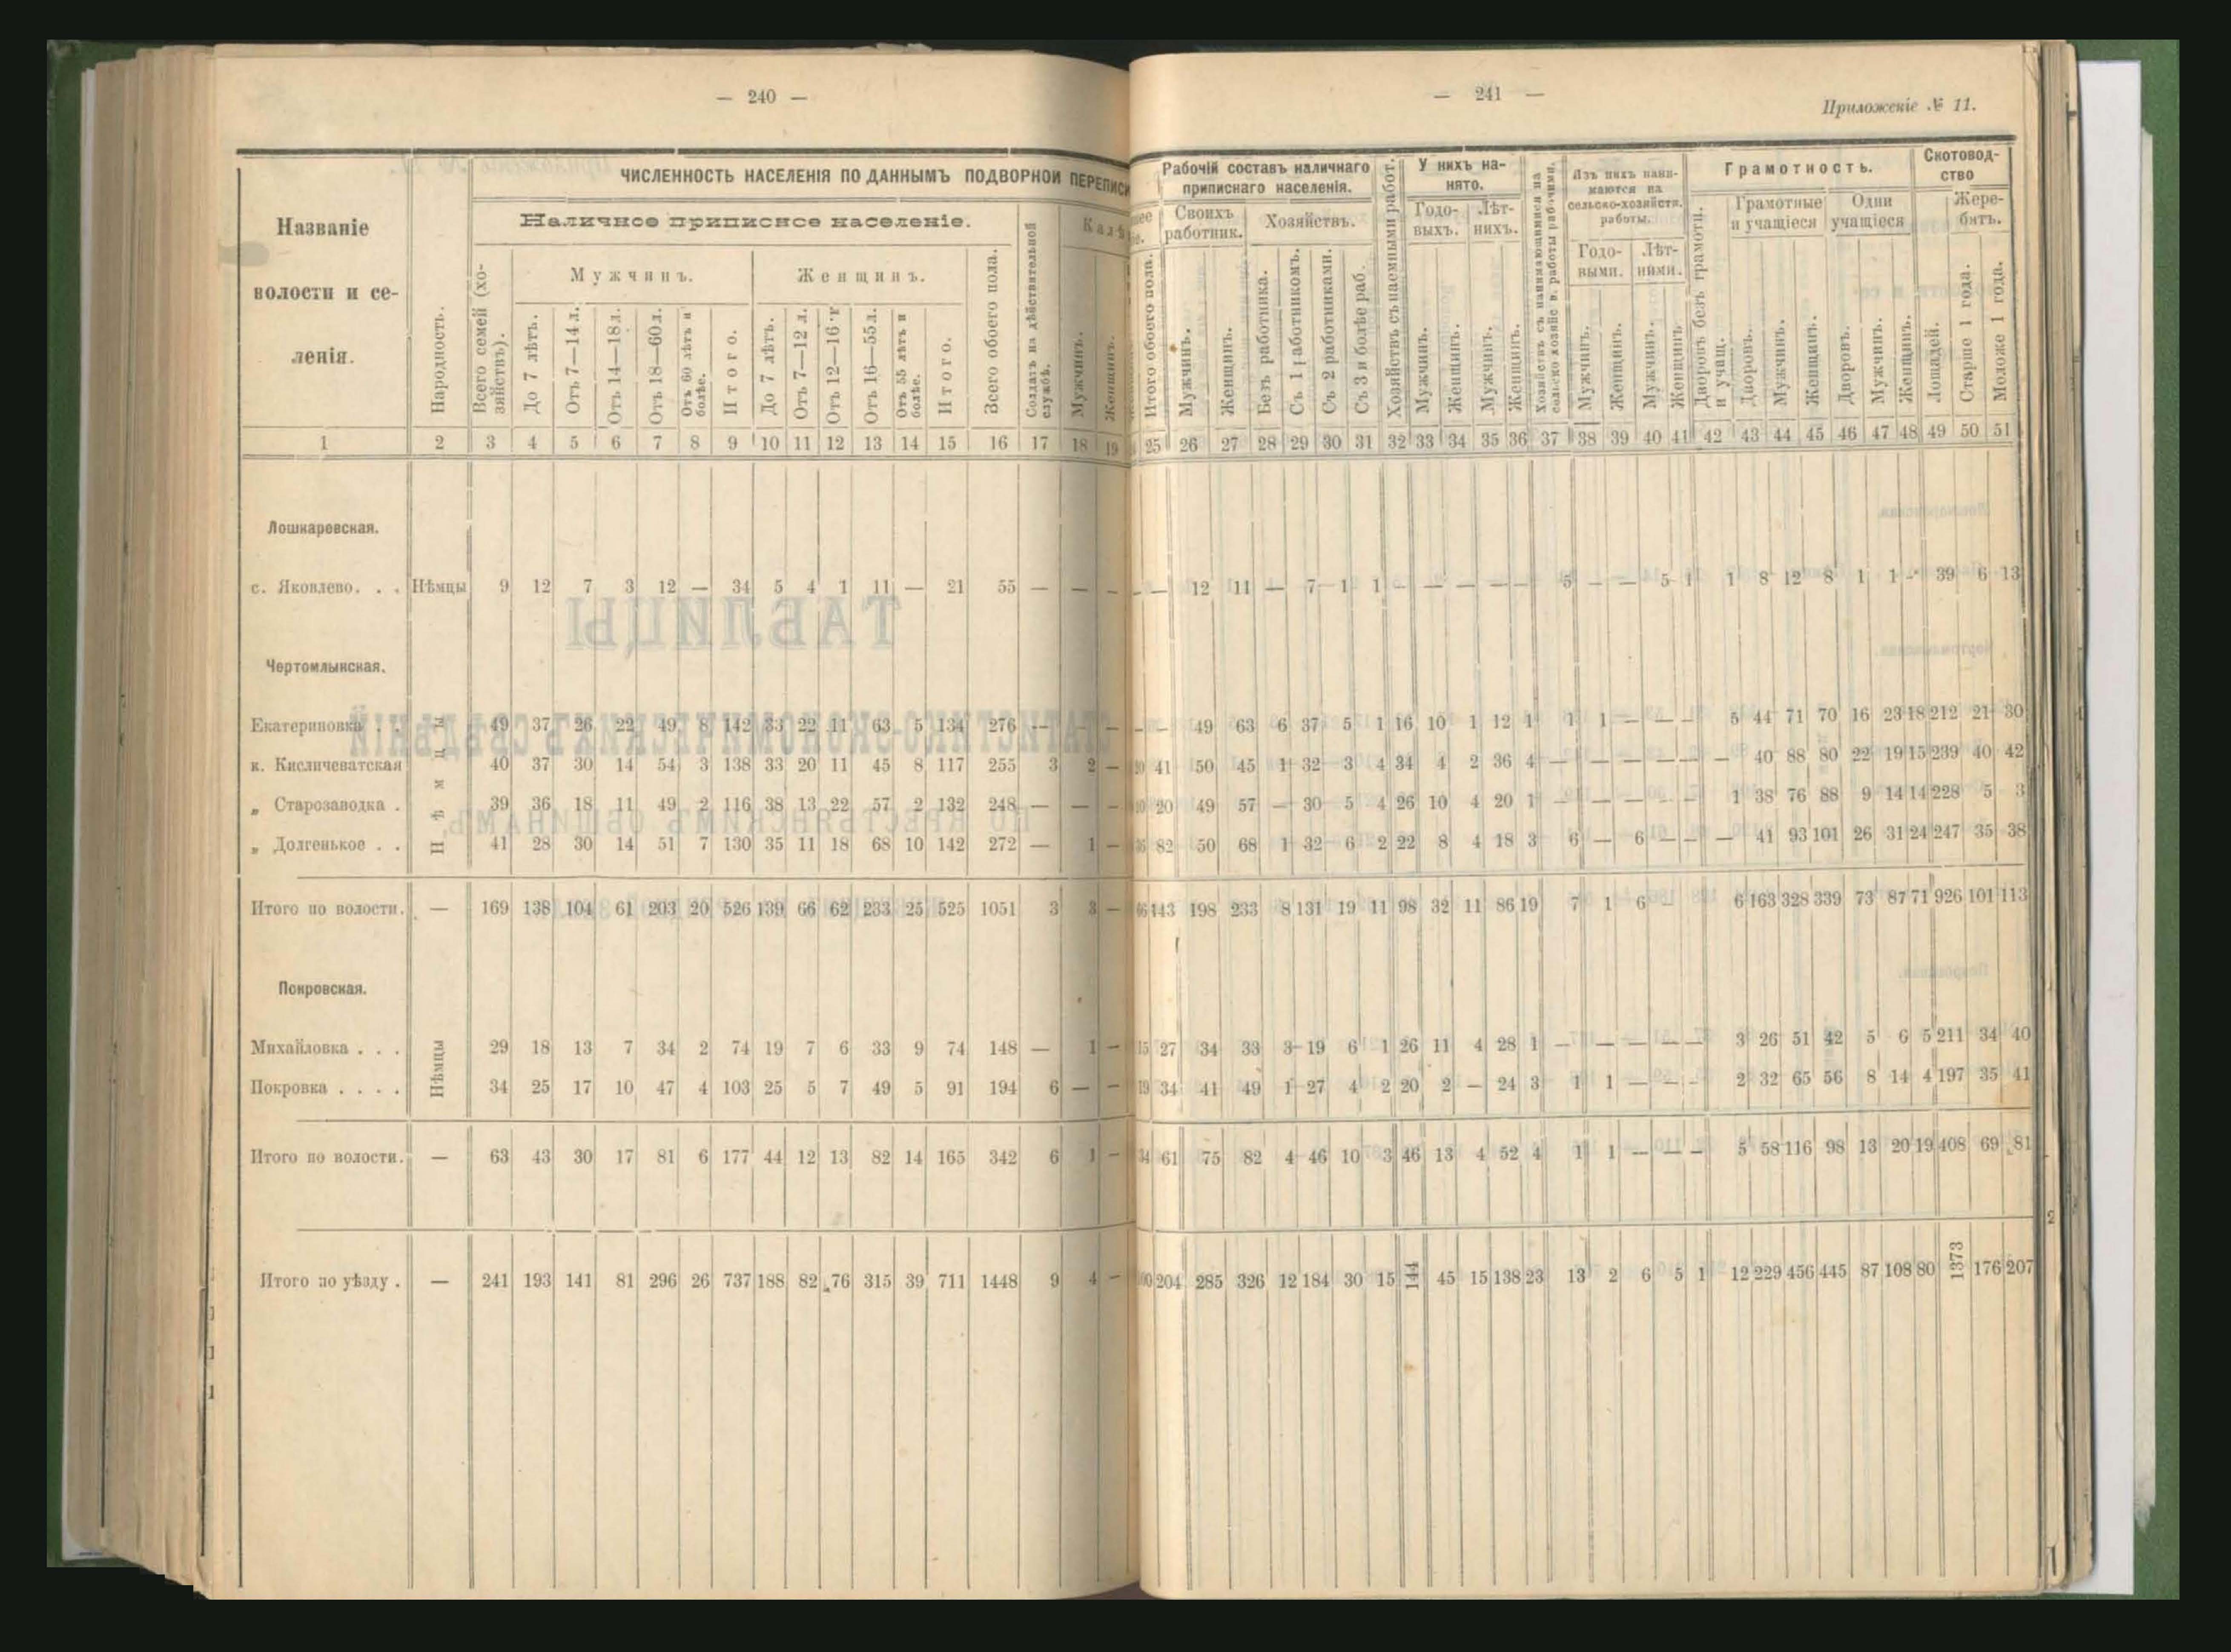 — 240 —
ЧИСЛЕННОСТЬ НАСЕЛЕНІЯ ПО ДАННЫМЪ ПОДВОРНОЙ ПЕРЕПИСИ
Названіе волости и селенія.
Народность.
Всего семей (хозяйствъ).
Наличное приписное населеніе.
Мужчинъ.
До 7 лѣтъ.
Отъ 7—14 л.
Отъ 14—18 л.
Отъ 18—60 л.
Отъ 60 лѣтъ и болѣе.
Итого.
Женщинъ.
До 7 лѣтъ.
Отъ 7—12 л.
Отъ 12—16 г
Отъ 16—55 л.
Отъ 55 лѣтъ и болѣе.
Итого.
Всего обоего пола.
Солдатъ на дѣйствительной службѣ.
Калѣ
Мужчинъ.
Женщинъ.
1 2 3 4 5 6 7 8 9 10 11 12 13 14 15 16 17 18 19
Лошкаревская.
с. Яковлево. . . Нѣмцы 9 12 7 3 12 — 34 5 4 1 11 — 21 55 — — —
Чертомлыкская.
Нѣмцы
Екатериновка . . 49 37 26 22 49 8 142 33 22 11 63 5 134 276 — — —
к. Кисличеватская 40 37 30 14 54 3 138 33 20 11 45 8 117 255 3 2 —
„ Старозаводка . 39 36 18 11 49 2 116 38 13 22 57 2 132 248 — — —
„ Долгенькое . . 41 28 30 14 51 7 130 35 11 18 68 10 142 272 — 1 —
Итого по волости. — 169 138 104 61 203 20 526 139 66 62 233 25 525 1051 3 3 —
Покровская.
Нѣмцы
Михайловка . . . 29 18 13 7 34 2 74 19 7 6 33 9 74 148 — 1 —
Покровка . . . . 34 25 17 10 47 4 103 25 5 7 49 5 91 194 6 — —
Итого по волости. — 63 43 30 17 81 6 177 44 12 13 82 14 165 342 6 1 —
Итого по уѣзду . — 241 193 141 81 296 26 737 188 82 76 315 39 711 1448 9 4 —
— 241 —
Приложеніе № 11.
Итого обоего пола.
Рабочій составъ наличнаго приписнаго населенія.
Своихъ работник.
Мужчинъ.
Женщинъ.
Хозяйствъ.
Безъ работника.
Съ 1 работникомъ.
Съ 2 работниками.
Съ 3 и болѣе раб.
Хозяйствъ съ наемными работ.
У нихъ нанято.
Годовыхъ.
Мужчинъ.
Женщинъ.
Лѣтнихъ.
Мужчинъ.
Женщинъ.
Хозяйствъ съ нанимающимися на сельско хозяйс в. работы рабочими.
Изъ нихъ нанимаются на сельско-хозяйств. работы.
Годовыми.
Мужчинъ.
Женщинъ.
Лѣтними.
Мужчинъ.
Женщинъ.
Грамотность.
Дворовъ безъ грамотн. и учащ.
Грамотные и учащіеся
Дворовъ.
Мужчинъ.
Женщинъ.
Одни учащіеся
Дворовъ.
Мужчинъ.
Женщинъ.
Скотоводство
Лошадей.
Жеребятъ.
Старше 1 года.
Моложе 1 года.
25 26 27 28 29 30 31 32 33 34 35 36 37 38 39 40 41 42 43 44 45 46 47 48 49 50 51
— — 12 11 — 7 1 1 — — — — — 5 — — 5 1 1 8 12 8 1 1 — 39 6 13
— — 49 63 6 37 5 1 16 10 1 12 1 1 1 — — — 5 44 71 70 16 23 18 212 21 30
41 50 45 1 32 3 4 34 4 2 36 4 — — — — — — 40 88 80 22 19 15 239 40 42
20 49 57 — 30 5 4 26 10 4 20 1 — — — — — 1 38 76 88 9 14 14 228 5 3
82 50 68 1 32 6 2 22 8 4 18 3 6 — 6 — — — 41 93 101 26 31 24 247 35 38
143 198 233 8 131 19 11 98 32 11 86 19 7 1 6 — — 6 163 328 339 73 87 71 926 101 113
15 27 34 33 3 19 6 1 26 11 4 28 1 — — — — — 3 26 51 42 5 6 5 211 34 40
19 34 41 49 1 27 4 2 20 2 — 24 3 1 1 — — — 2 32 65 56 8 14 4 197 35 41
34 61 75 82 4 46 10 3 46 13 4 52 4 1 1 — — — 5 58 116 98 13 20 19 408 69 81
204 285 326 12 184 30 15 144 45 15 138 23 13 2 6 5 1 12 229 456 445 87 108 80 1373 176 207